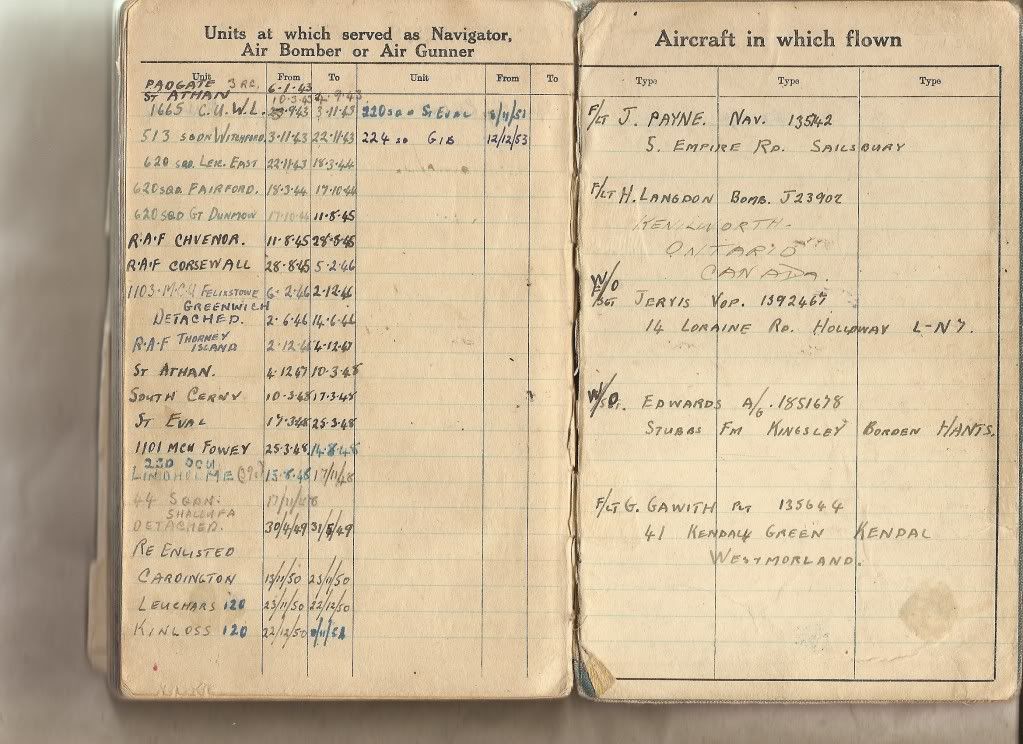 Units at which served as Navigator,
Air Bomber or Air Gunner
Unit From To Unit From To
PADGATE 3 RC. 6-1-43
ST ATHAN 10-3-43 4-9-43
1665 C.U. W.L. 3-11-43 220 SQD St EVAL
513 SQDN WITCHFORD 3-11-43 22-11-43 224 SQ GIB 12/12/53
620 SQD. LEIC. EAST 22-11-43 18-3-44
620 SQD FAIRFORD. 18-3-44 17-10-44
620 SQD GT DUNMOW 17-10-44 11-8-45
R.A.F CHVENOR. 11-8-45 28-8-45
R.A.F CORSEWALL 28-8-45 5-2-46
1103 M.C.U FELIXSTOWE 6-2-46 2-12-46
GREENWICH
DETACHED. 2-6-46 14-6-46
R.A.F THORNEY
ISLAND 2-12-46 4-12-47
ST ATHAN. 4-12-47 10-3-48
SOUTH CERNY 10-3-48 17-3-48
ST EVAL 17-3-48 25-3-48
1101 MCU FOWEY 25-3-48 14-8-48
230 OCU
LINDHOLME 15-8-48 17/11/48
44 SQDN. 17/11/48
SHALLUFA
DETACHED. 30/4/49 31/5/49
RE ENLISTED
CARDINGTON 13/11/50 23/11/50
LEUCHARS 120 23/11/50 22/12/50
KINLOSS 120 22/12/50
Aircraft in which flown
Type Type Type
F/LT J. PAYNE. NAV. 13542
5. EMPIRE RD. SAILSBURY
F/LT H. LANGDON BOMB. J23902
KENILWORTH.
ONTARIO
CANADA.
W/O
JERVIS WOP. 1392467
14 LORAINE RD. HOLLOWAY L-N7.
W/O. EDWARDS A/G. 1851678
STUBBS FM KINGSLEY BORDEN HANTS.
F/LT G. GAWITH PLT 135644
41 KENDAL GREEN KENDAL
WESTMORLAND.